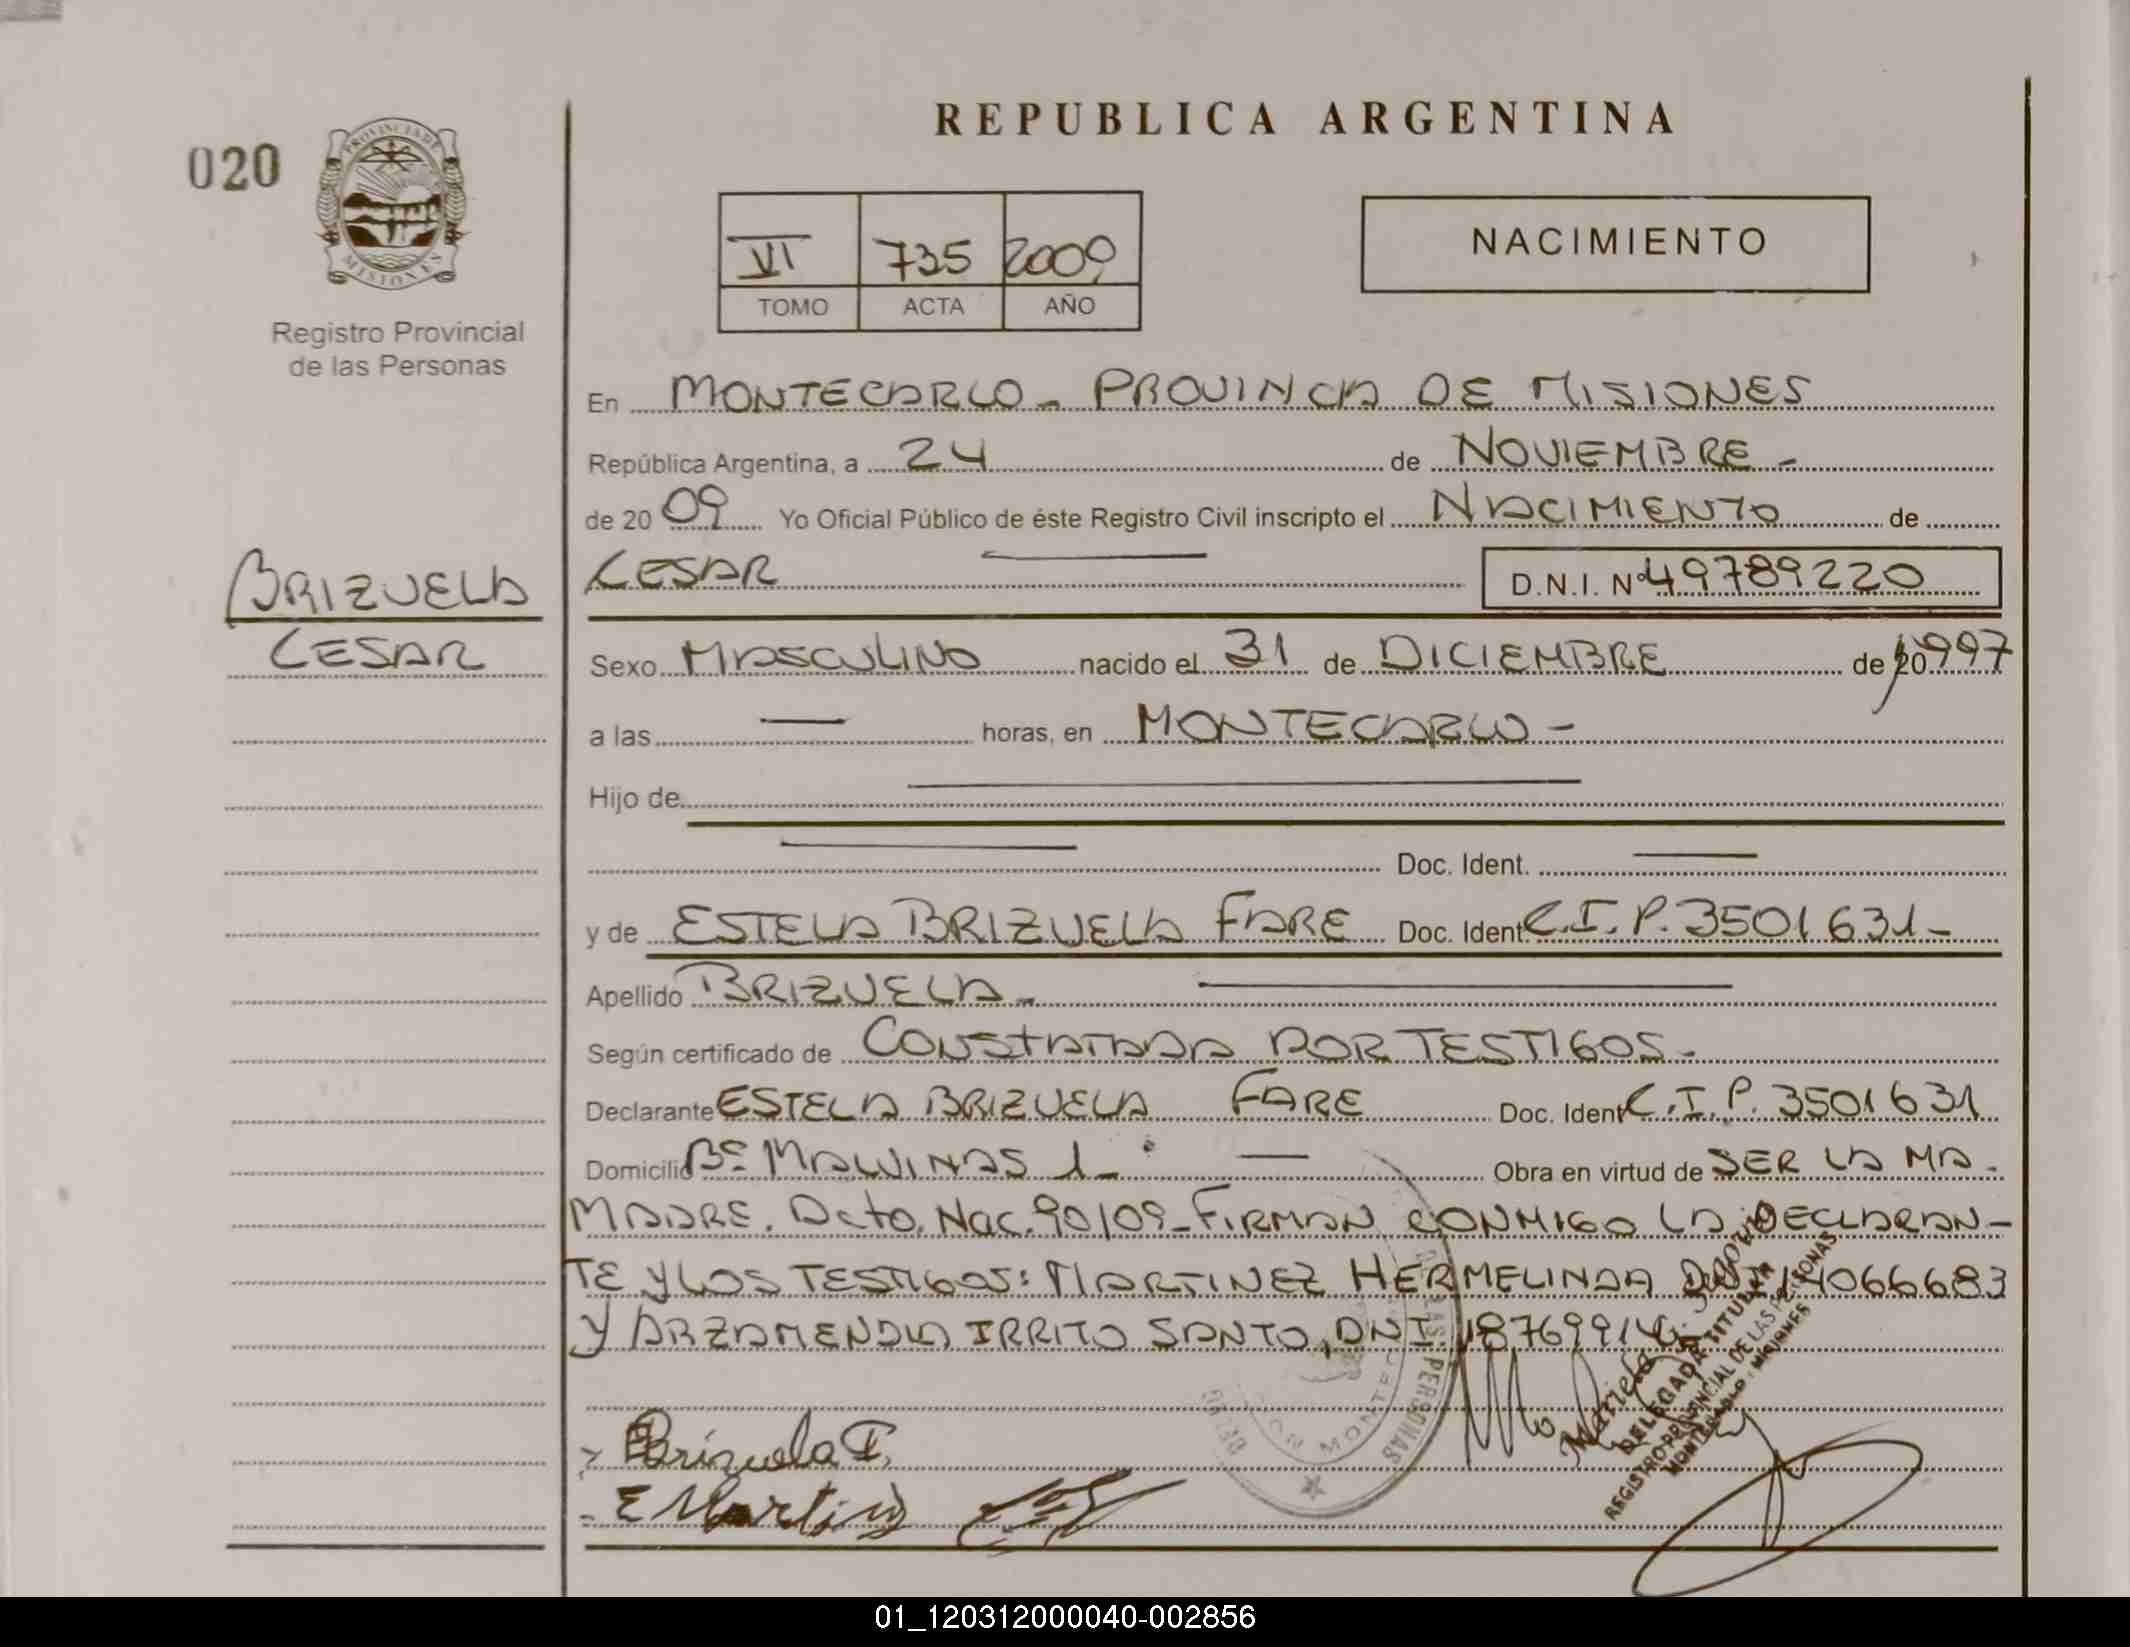 REPUBLICA ARGENTINA
020
PROVINCIA DE
MISIONES
Registro Provincial
de las Personas
VI 735 2009
TOMO ACTA AÑO
NACIMIENTO
En MONTECARLO - PROVINCIA DE MISIONES
República Argentina, a 24 de NOVIEMBRE -
de 20 09 Yo Oficial Público de éste Registro Civil inscripto el NACIMIENTO de
CESAR D.N.I. Nº 49789220
BRIZUELA
CESAR
Sexo MASCULINO nacido el 31 de DICIEMBRE de 1997
a las — horas, en MONTECARLO -
Hijo de
Doc. Ident. —
y de ESTELA BRIZUELA FARE Doc. Ident C.I.P. 3501631-
Apellido BRIZUELA -
Según certificado de CONSTATADA POR TESTIGOS -
Declarante ESTELA BRIZUELA FARE Doc. Ident C.I.P. 3501631
Domicilio Bº MALVINAS 1- — Obra en virtud de SER LA MA-
MADRE. Dcto. Nac. 90/09 - FIRMAN CONMIGO LA DECLARAN-
TE Y LOS TESTIGOS: MARTINEZ HERMELINDA DNI 14066683
Y ARZAMENDIA IRRITO SANTO, DNI 18769914
Brizuela F.
E Martinez
LAS PERSONAS
Mariela
DELEGADA TITULAR
REGISTRO PROVINCIAL DE LAS PERSONAS
MONTECARLO - MISIONES
01_120312000040-002856